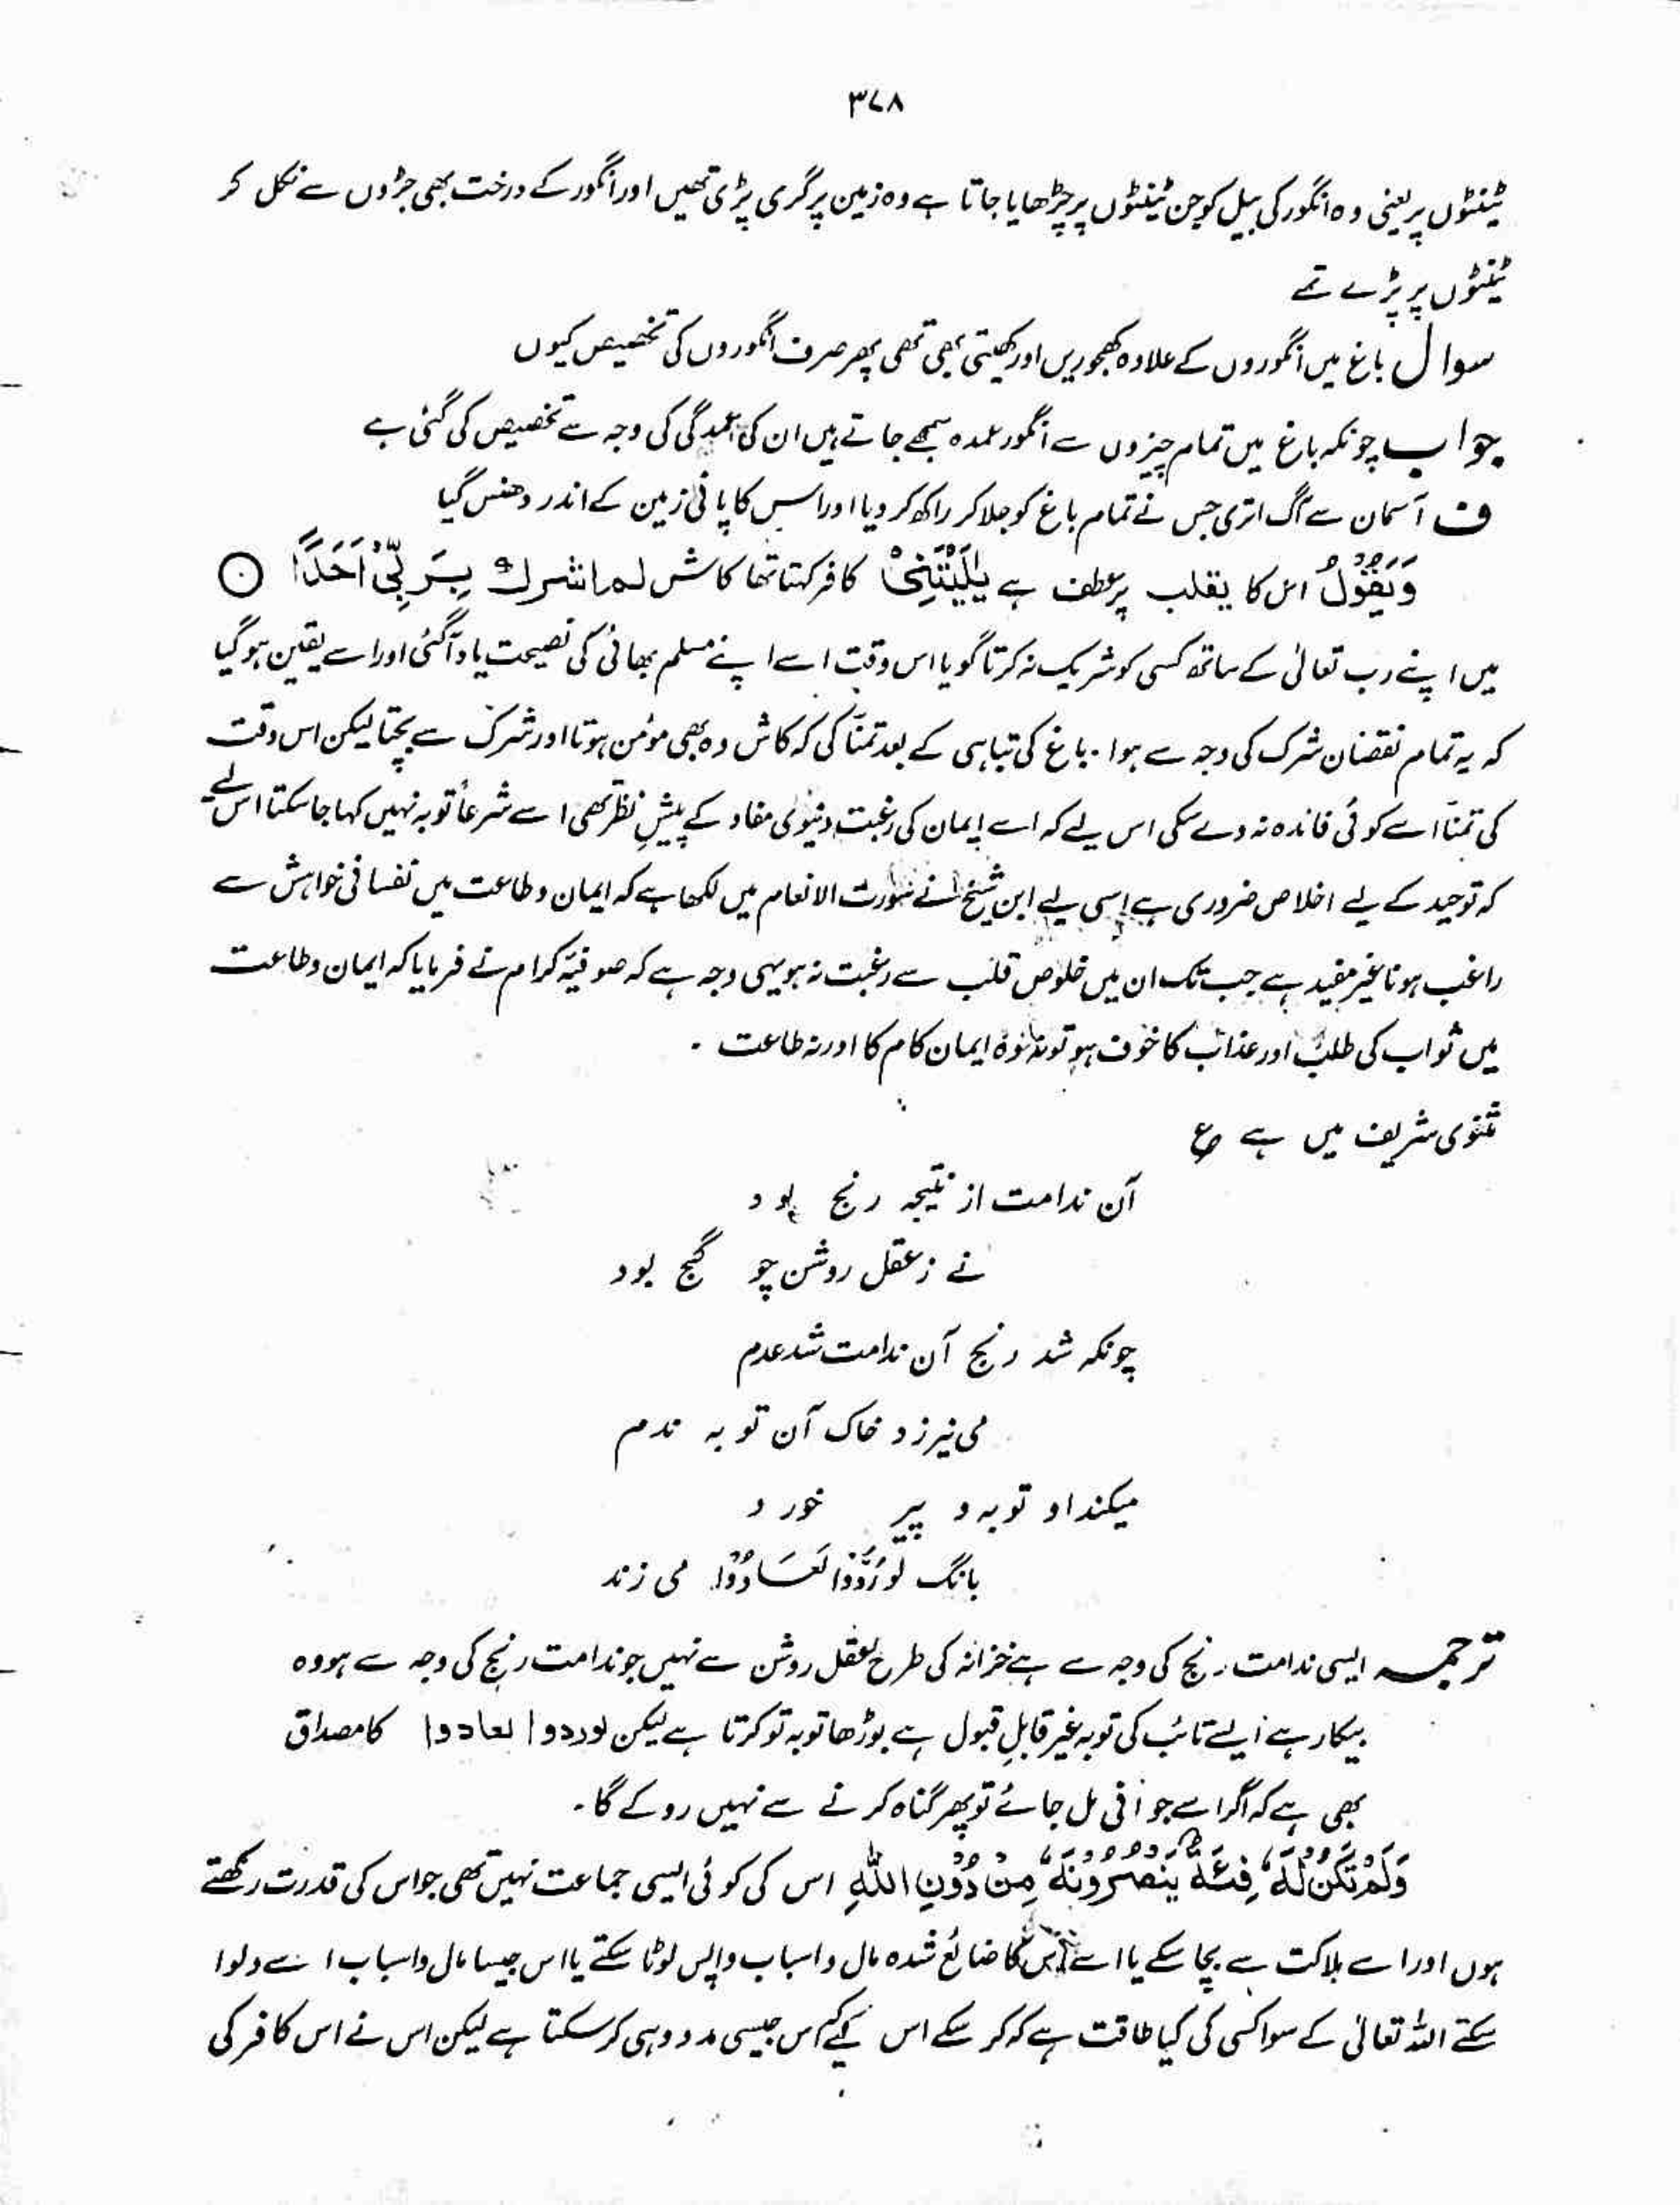 ۳۷۸
ٹہنٹوں پر یعنی وہ انگور کی بیل کو جن ٹہنٹوں پر چڑھایا جاتا ہے وہ زمین پر گری پڑی تھیں اور انگور کے درخت بھی جڑوں سے نکل کر
ٹہنٹوں پر پڑے تھے
سوال باغ میں انگوروں کے علاوہ کھجوریں اور کھیتی بھی تھی پھر صرف انگوروں کی تخصیص کیوں
جواب چونکہ باغ میں تمام چیزوں سے انگور عمدہ سمجھے جاتے ہیں ان کی عمدگی کی وجہ سے تخصیص کی گئی ہے
ف آسمان سے آگ اتری جس نے تمام باغ کو جلا کر راکھ کر دیا اور اس کا پانی زمین کے اندر دھنس گیا
وَيَقُوْلُ اس کا یقلب پر عطف ہے يٰلَيْتَنِيْ کافر کہتا تھا کاش لم اشرك بِرَبِّيْ اَحَدًا ○
میں اپنے رب تعالیٰ کے ساتھ کسی کو شریک نہ کرتا گویا اس وقت اسے اپنے مسلم بھائی کی نصیحت یاد آگئی اور اسے یقین ہو گیا
کہ یہ تمام نقصان شرک کی وجہ سے ہوا ۔ باغ کی تباہی کے بعد تمنّا کی کہ کاش وہ بھی مؤمن ہوتا اور شرک سے بچتا لیکن اس وقت
کی تمنّا اسے کوئی فائدہ نہ دے سکی اس لیے کہ اسے ایمان کی رغبت دنیوی مفاد کے پیشِ نظر تھی اسے شرعاً توبہ نہیں کہا جا سکتا اس لیے
کہ توحید کے لیے اخلاص ضروری ہے اسی لیے ابن شیخ نے سورت الانعام میں لکھا ہے کہ ایمان و طاعت میں نفسانی خواہش سے
راغب ہونا غیر مفید ہے جب تک ان میں خلوص قلب سے رغبت نہ ہو یہی وجہ ہے کہ صوفیہ کرام نے فرمایا کہ ایمان و طاعت
میں ثواب کی طلب اور عذاب کا خوف ہو تو نہ وہ ایمان کام کا اور نہ طاعت ۔
مثنوی شریف میں ہے ؏
آن ندامت از نتیجہ رنج بود
نے ز عقل روشن چو گنج بود
چونکہ شد رنج آن ندامت شد عدم
می نیرزد خاک آن توبہ ندم
میکند او توبہ و پیر خورد
بانگ لَوْ رُدُّوْا لَعَادُوْا می زند
ترجمہ ایسی ندامت رنج کی وجہ سے ہے خزانہ کی طرح عقل روشن سے نہیں جو ندامت رنج کی وجہ سے ہو وہ
بیکار ہے ایسے تائب کی توبہ غیر قابلِ قبول ہے بوڑھا توبہ تو کرتا ہے لیکن لوردوا لعادوا کا مصداق
بھی ہے کہ اگر اسے جوانی مل جائے تو پھر گناہ کرنے سے نہیں روکے گا ۔
وَلَمْ تَكُنْ لَّهٗ فِئَةٌ يَّنْصُرُوْنَهٗ مِنْ دُوْنِ اللّٰهِ اس کی کوئی ایسی جماعت نہیں تھی جو اس کی قدرت رکھتے
ہوں اور اسے ہلاکت سے بچا سکے یا اسے اس کا ضائع شدہ مال و اسباب واپس لوٹا سکتے یا اس جیسا مال و اسباب اسے دلوا
سکتے اللہ تعالیٰ کے سوا کسی کی کیا طاقت ہے کہ کر سکے اس جیسی مدد وہی کر سکتا ہے لیکن اس نے اس کافر کی